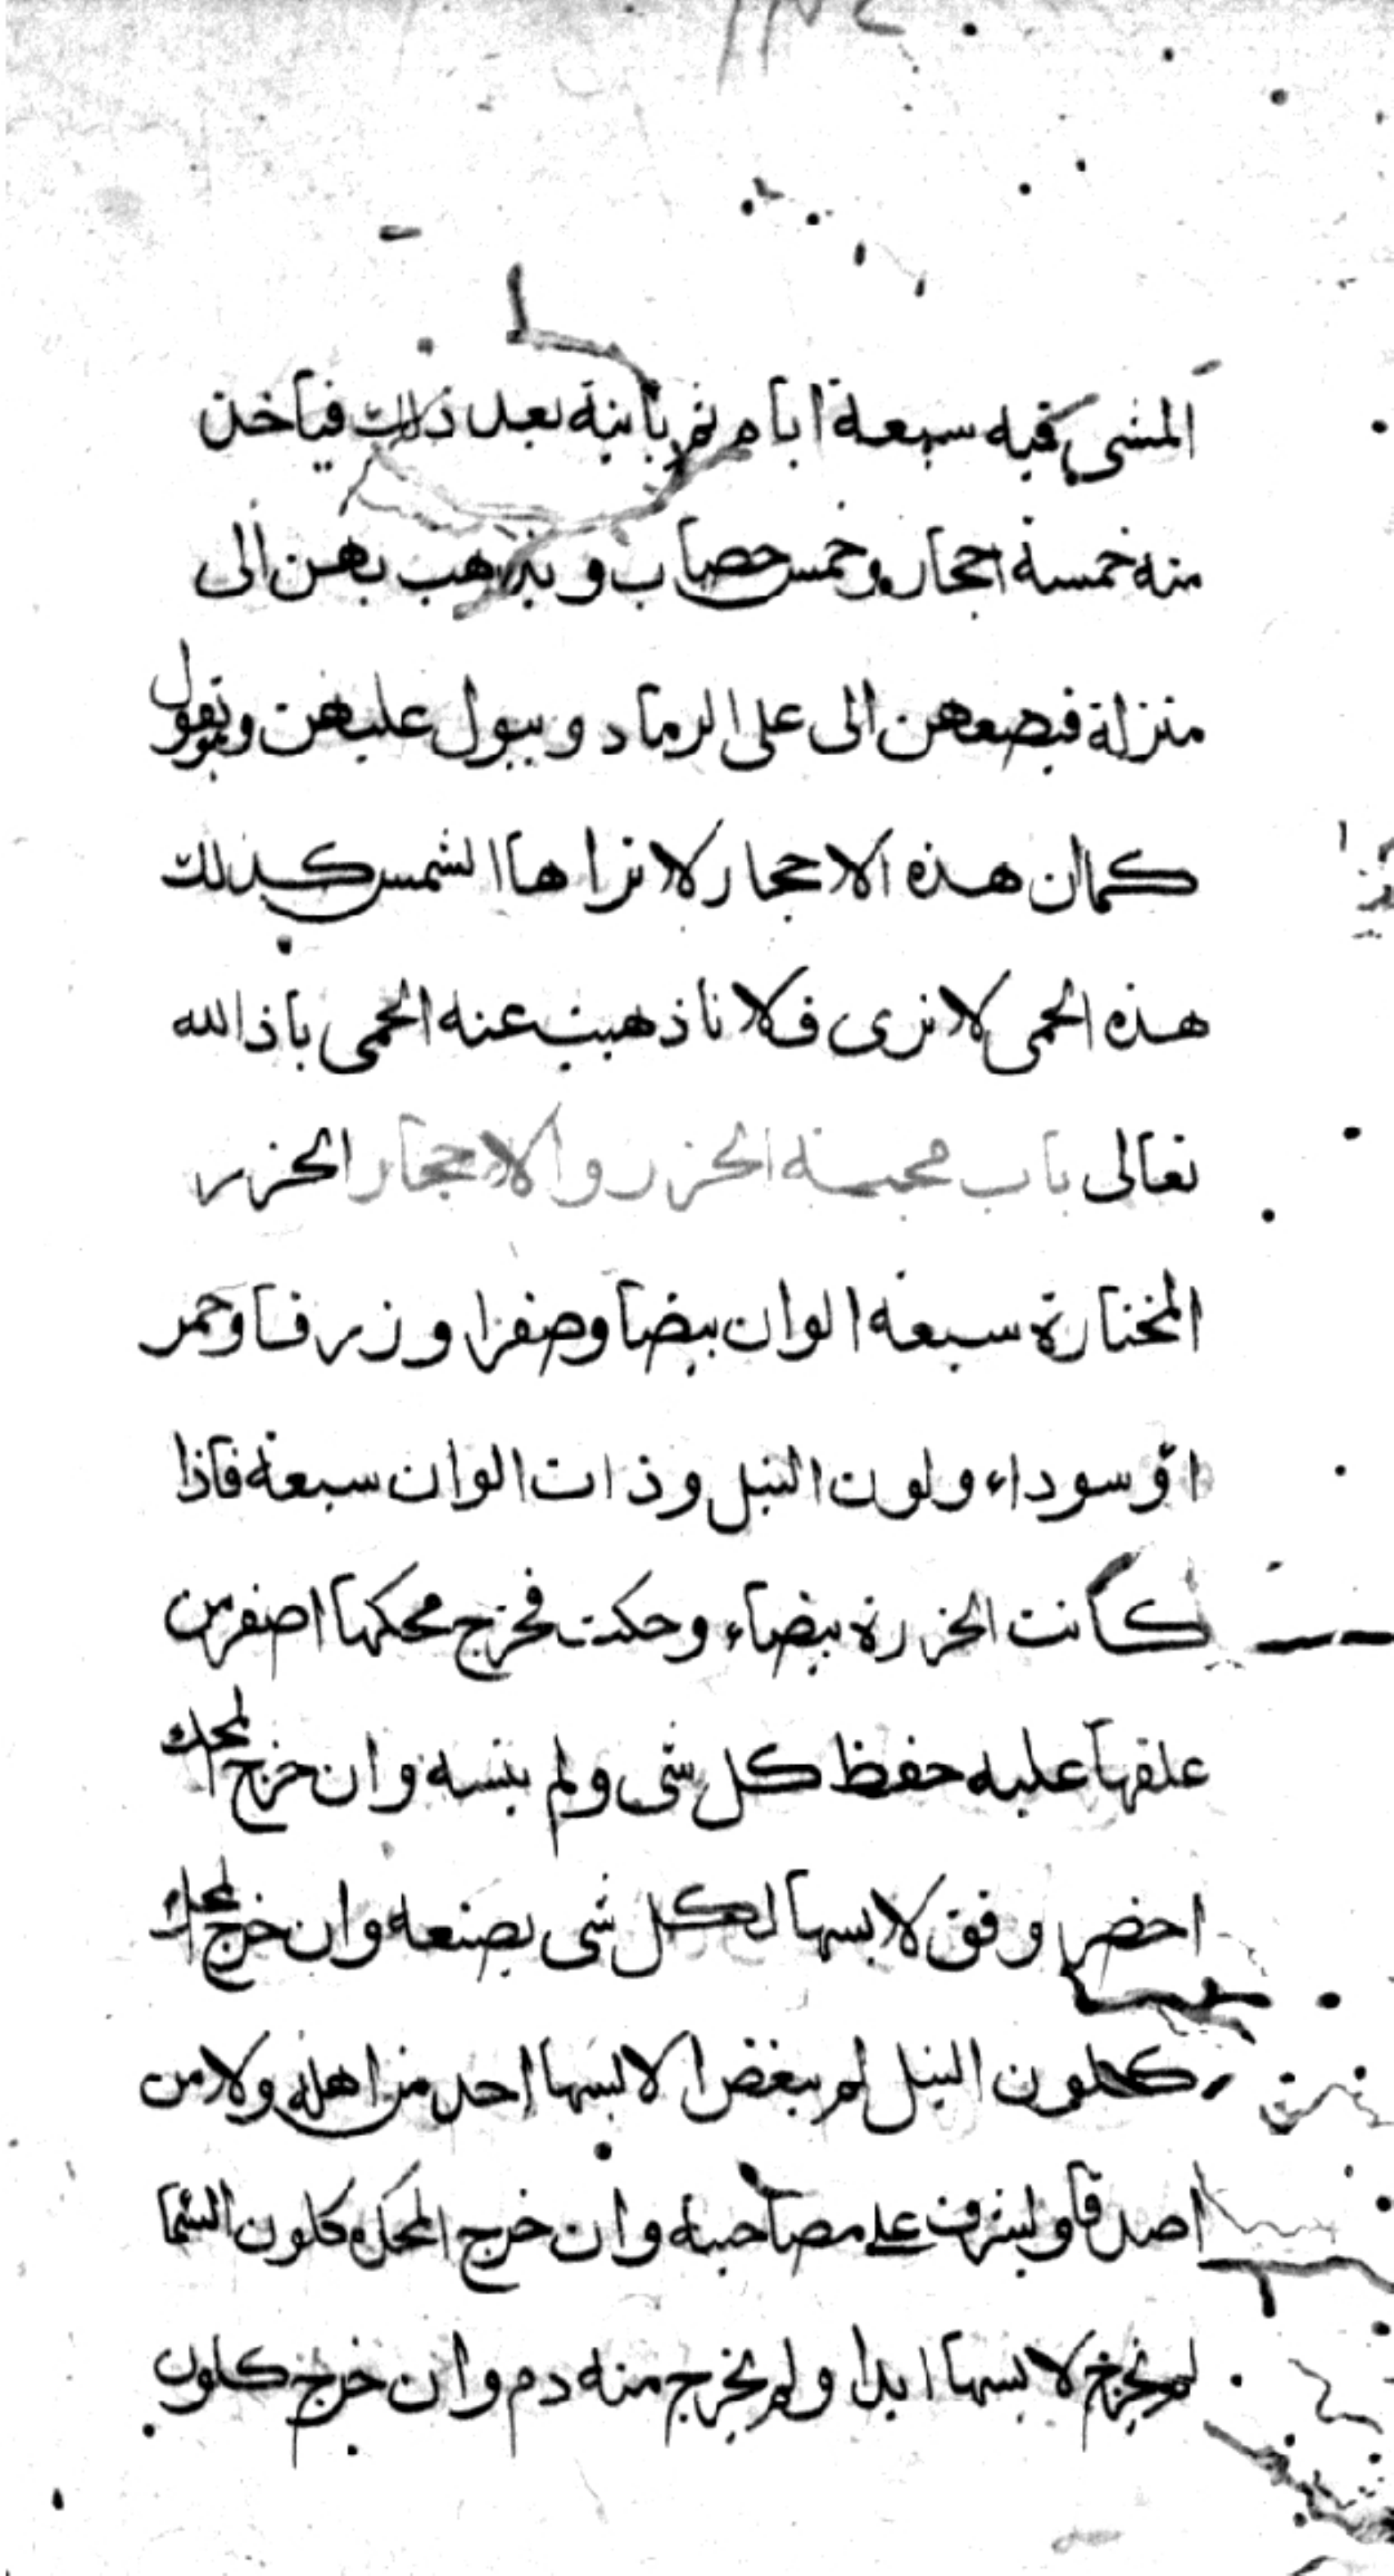 المشي فيه سبعة ايام ثم ياتيه بعد ذلك فياخذ
منه خمسة احجار وخمس حصاب و يذهب بهن الى
منزلة فيضعهن الى على الرماد ويبول عليهن ويقول
كمان هذه الاحجار لا تراها الشمس كذلك
هذه الحمى لا ترى فلانا ذهبت عنه الحمى باذ الله
تعالى باب محبسة الخزر والاحجار الخزر
المختارة سبعة الوان بيضا وصفرا وزرقا وحمر
او سوداء ولون النيل وذات الوان سبعة فاذا
كانت الخزرة بيضاء وحكت فخرج محكها اصفر من
علقها عليه حفظ كل شى ولم ينسه وان خرج المحك
اخضر وفق لابسها لكل شى يصنعه وان خرج المحك
كلون النيل لم يبغض الابسها احد من اهله ولا من
اصدقا وليشرف على مصاحبه وان خرج المحك كلون السما
لم يجرح لابسها ابدا ولم يخرج منه دم وان خرج كلون